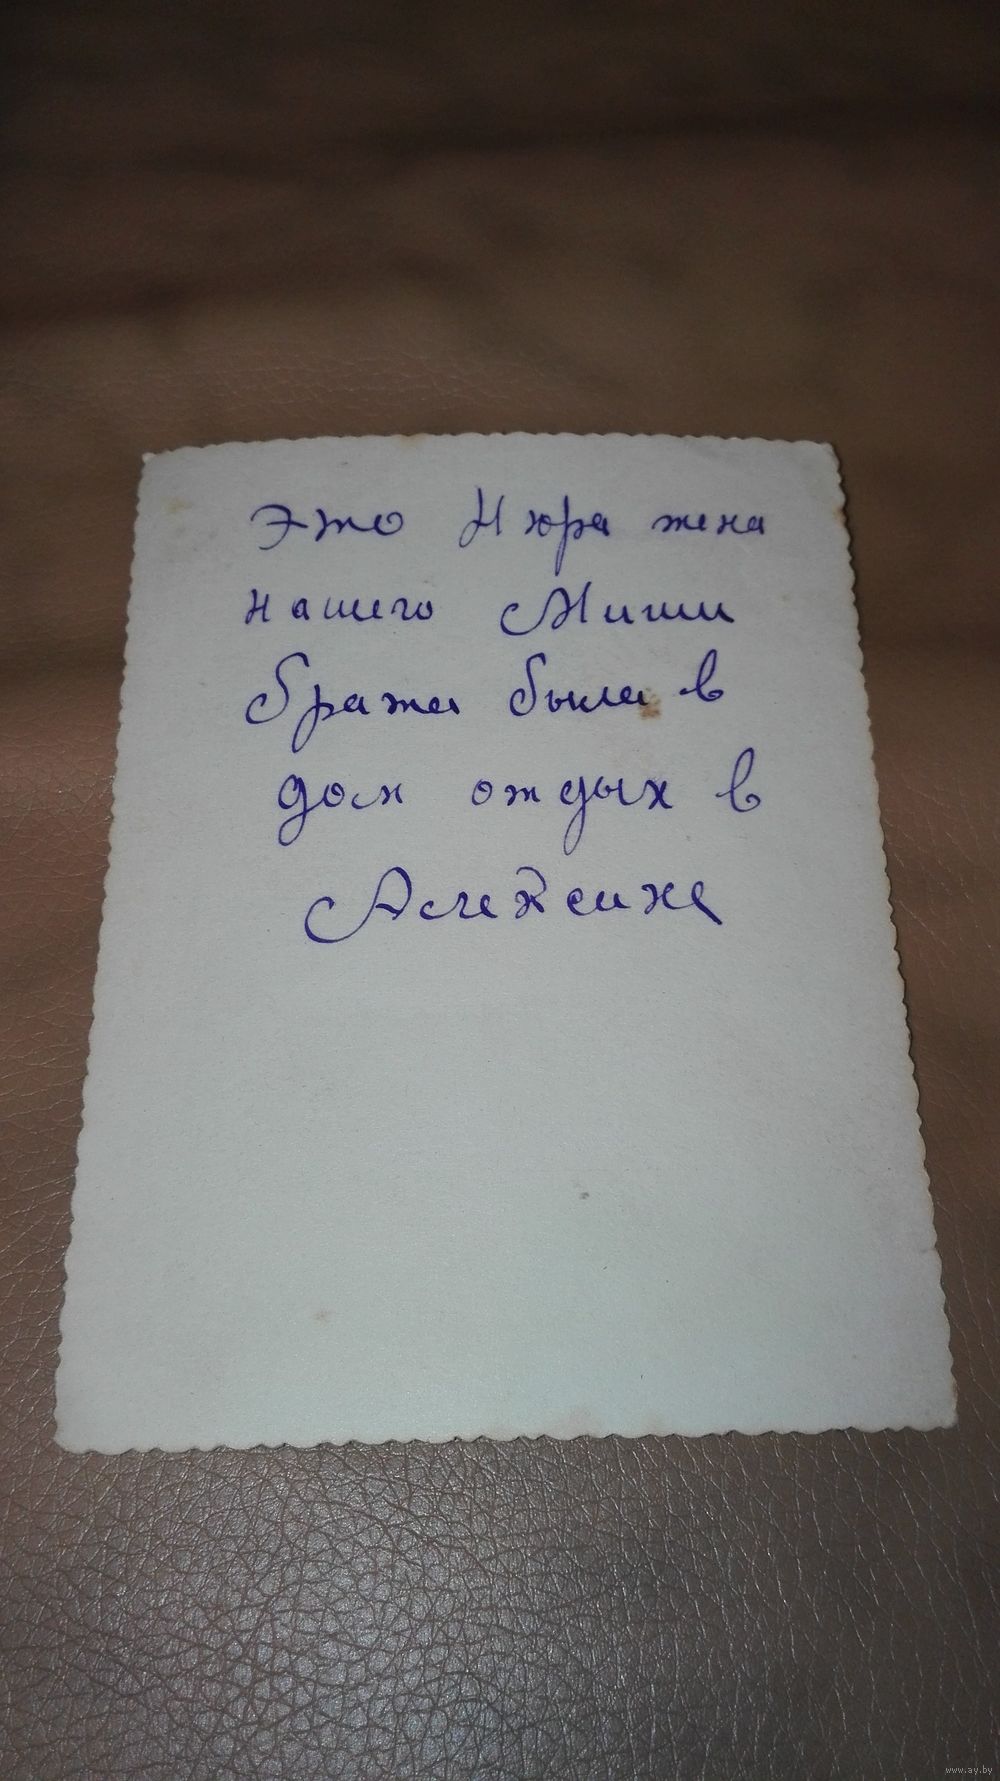 Это Нюра жена
нашего Миши
брата была в
дом отдых в
Алексине
www.ay.by